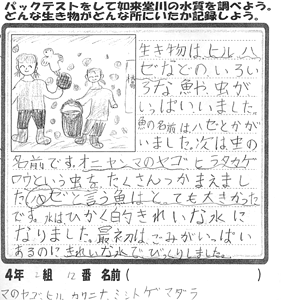 パックテストをして如来堂川の水質を調べよう。
どんな生き物がどんな所にいたか記録しよう。
生き物は、ヒル ハ
ゼなどの、いろい
ろな魚や、虫が
いっぱいいました。
魚の名前はハゼとかが
いました。次は虫の
名前です。オニヤンマのヤゴ ヒラタカゲ
ロウという虫を、たくさんつかまえまし
た。ハゼと言う魚は、とっても大きかった
です。水は、ひかく的きれいな水に
なりました。最初は、ごみがいっぱい
あるのにきれいな水で、びっくりしました。
4年 組 12番 名前( )
マのヤゴ、ヒル カワニナ、ミントゲマダラ